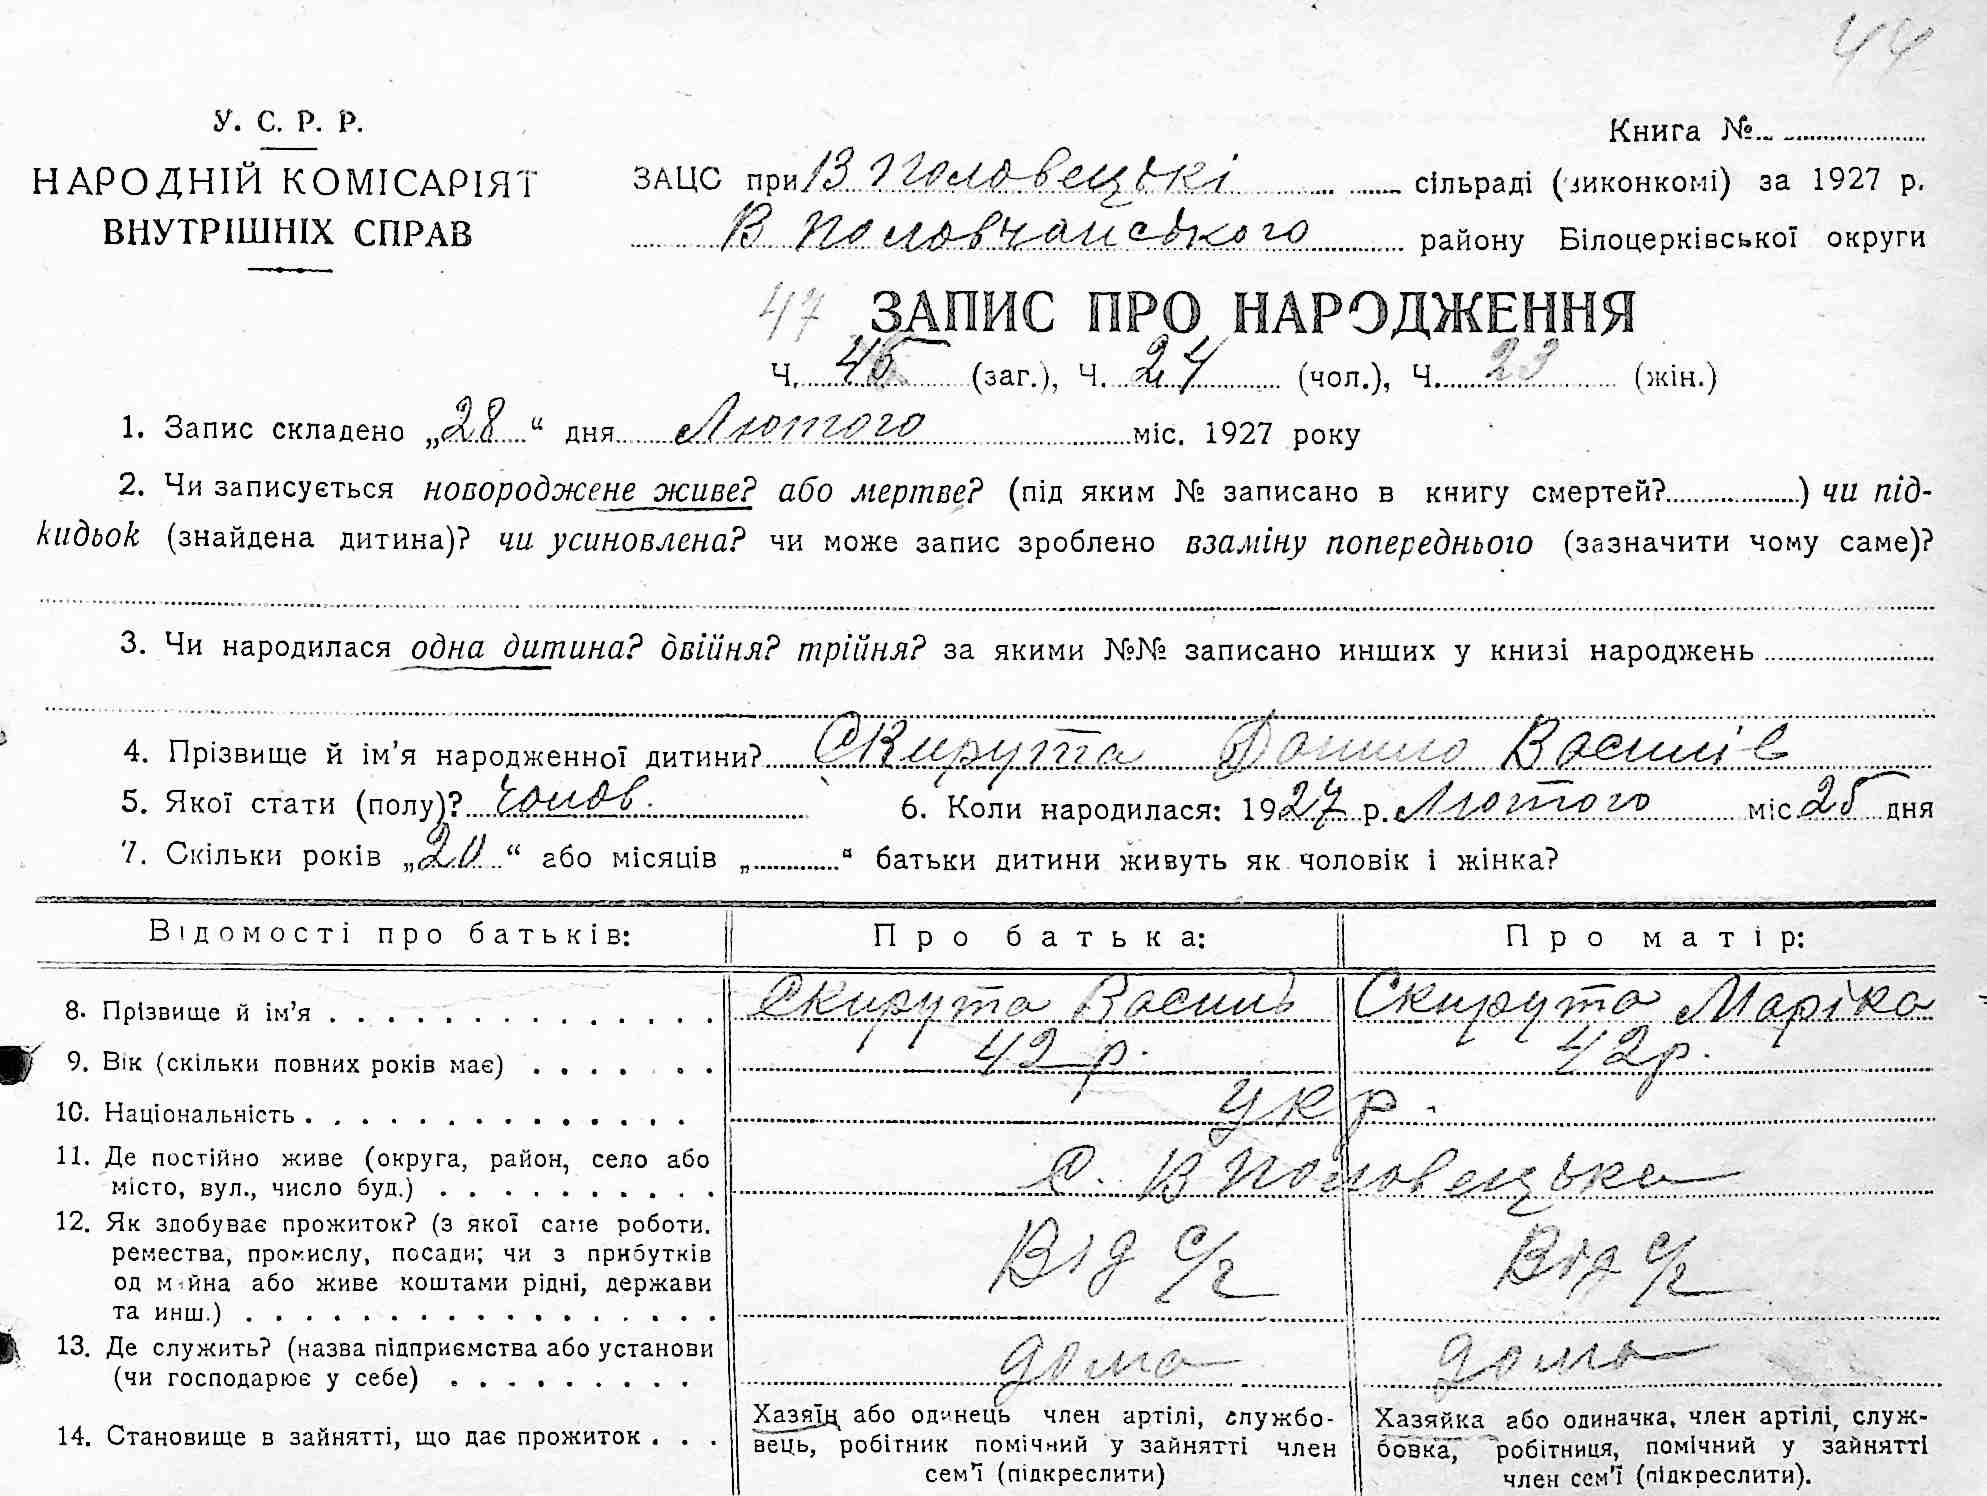 44
У. С. Р. Р.
НАРОДНІЙ КОМІСАРІЯТ
ВНУТРІШНІХ СПРАВ
Книга №
ЗАЦС при В Половецькі сільраді (виконкомі) за 1927 р.
В Половчанського району Білоцерківської округи
47 ЗАПИС ПРО НАРОДЖЕННЯ
Ч. 45 (заг.), Ч. 24 (чол.), Ч. 23 (жін.)
1. Запис складено „28“ дня Лютого міс. 1927 року
2. Чи записується новороджене живе? або мертве? (під яким № записано в книгу смертей? ) чи під-
кидьок (знайдена дитина)? чи усиновлена? чи може запис зроблено взаміну попереднього (зазначити чому саме)?
3. Чи народилася одна дитина? двійня? трійня? за якими №№ записано инших у книзі народжень
4. Прізвище й ім'я народженної дитини? Скирута Данило Василів
5. Якої стати (полу)? Чолов. 6. Коли народилася: 1927 р. Лютого міс 25 дня
7. Скільки років „20“ або місяців „ “ батьки дитини живуть як чоловік і жінка?
Відомості про батьків: Про батька: Про матір:
8. Прізвище й ім'я Скирута Василь Скирута Маріка
9. Вік (скільки повних років має) 42 р. 42 р.
10. Національність укр.
11. Де постійно живе (округа, район, село або
місто, вул., число буд.) С. В Половецьке
12. Як здобуває прожиток? (з якої саме роботи.
ремества, промислу, посади; чи з прибутків
од майна або живе коштами рідні, держави
та инш.) Від с/г Від с/г
13. Де служить? (назва підприємства або установи
(чи господарює у себе) дома дома
14. Становище в зайнятті, що дає прожиток
Хазяїн або одинець член артілі, службо-
вець, робітник помічний у зайнятті член
сем'ї (підкреслити)
Хазяйка або одиначка, член артілі, служ-
бовка, робітниця, помічний у зайнятті
член сем'ї (підкреслити).